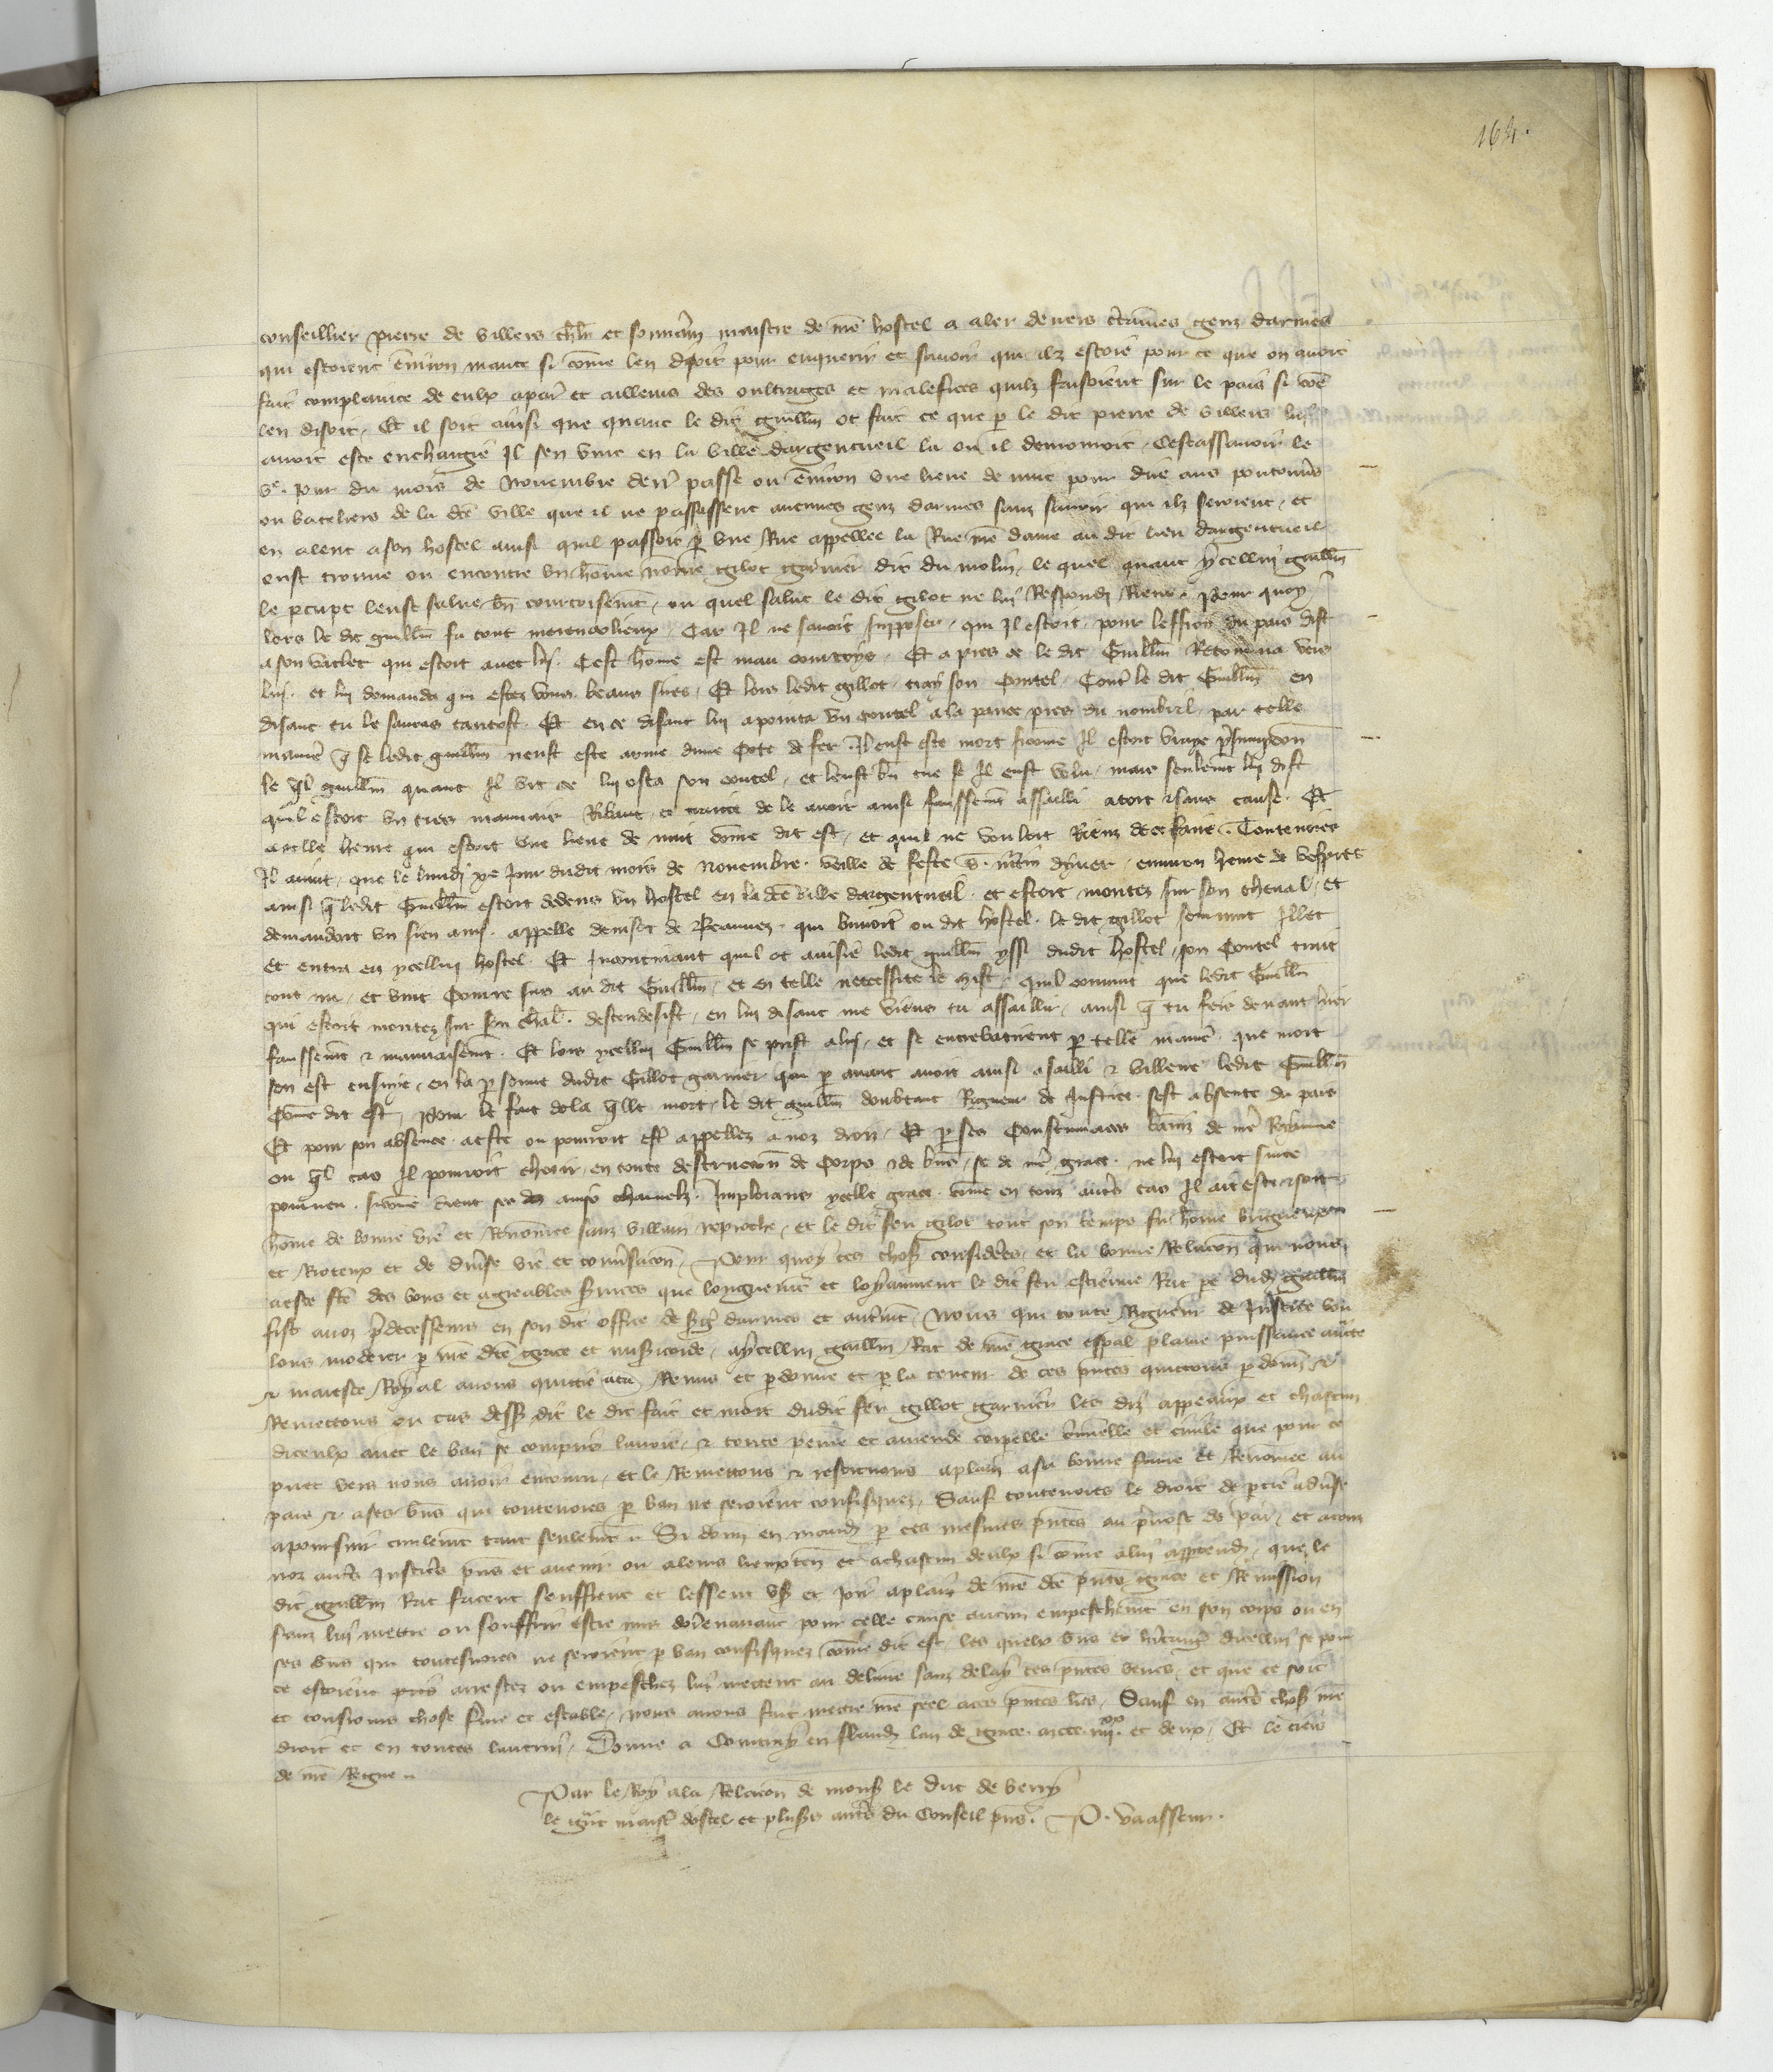 164.
conseillier pierre de villers chlr et souuain maistre de nre hostel a aler deuers ctaines genz darmes
qui estoient enuiron mante si come len disoit pour enquerir et sauoir qui ilz estoiet pour ce que on auoit
fait complainte de eulx a par et ailleurs des oultrages et malefices quilz faisoient sur le pais si coe
len disoit. Et il soit ainsi que quant le dit guillm ot fait ce que p le dit pierre de villers lui
auoit este enchargie Il sen vint en la ville dargentueil la ou il demouroit. Cestassauoir le
ve. Jour du mois de Nouembre derr passe ou enuiron vne heure de nuit pour dire aus pontonrs
ou bateliers de la dce ville que il ne passassent aucunes genz darmes sanz sauoir qui ilz seroient. et
en alent a son hostel ainsi quil passoit p vne Rue appellee la Rue nre dame au dit lieu dargentueil
eust trouue ou encontre vn home nome gilot garnier dit du molin. le quel quant ycellui guillm
le pcupt leust salue bn courtoisemt, ou quel salut le dit gilot ne lui Respondi Riens. Pour quoy
lors le dit guillm fu tout merencolieux. Car Il ne sauoit supposer qui Il estoit. pour leffroy du pais dist
a son varlet qui estoit auec lui. Cest home est mau courtoys. Et apres ce le dit Guillm Retourna vers
lui. et lui demanda qui estes vous beaus sires. Et lors ledit gillot tray son Coutel. Contre le dit Guillm en
disant tu le sauras tantost. Et en ce disant lui apointa vn coutel a la pance pres du nombril par telle
maniere q se ledit guillm neust este arme dune Cote de fer. Il eust este mort sicome Il estoit vraye psumpcon
le ql guillm quant Il vit ce lui osta son coutel. et leust bn tue se Il eust volu. mais seulemt lui dist
quil estoit vn tres mauuais Ribaut et traitre de le auoir ainsi faussemt assailli a tort & sans cause. Et
a celle heure qui estoit vne heure de nuit come dit est. et quil ne vouloit Riens de ce faire. Toutevoies
Il auint que le lundi xe Jour dudit mois de Nouembre. veille de feste s. martin dyuer. enuiron heure de vespres
ainsi q ledit Guillm estoit dedens vn hostel en la dce ville dargentueil. et estoit montez sur son cheual. et
demandoit vn sien ami appelle denisot de Beaunez qui buuoit ou dit hostel. le dit gillot seuruint Illec
et entra en ycellui hostel. Et Incontinant quil ot auisie ledit guillm yssi dudit hostel son Coutel trait
tout nu. et vint Courre sus au dit Guillm. et en telle necessite le mist. quil conuint que ledit Guillm
qui estoit montez sur son chal. descendesist. en lui disant me viens tu assaillir. ainsi q tu feis deuant hier
faussemt & mauuaisemt. Et lors ycellui Guillm se prist a lui. et se entrebatirent p telle maniere que mort
sen est ensuye. en la psonne dudit Gillot garnier qui p auant auoit ainsi assailli & villene ledit Guillm
Come dit est. Pour le fait de la qlle mort. le dit guillm doubtant Rigueur de Justice. sest absente du pais
Et pour son absence a este ou pourroit estre appellez a noz droiz. Et p ses Constumaces baniz de nre Royaume
ou ql cas Il pourroit cheoir en toute destruccon de Corps & de biens. se de nre grace ne lui estoit sur ce
pourueu. sicome dient ses amis charnelz. Implorans ycelle grace. come en touz autres cas Il ait este & soit
home de bonne vie et Renommee sanz villain reproche. et le dit feu gilot tout son temps fu home brigueux
et Rioteux et de diuse vie et conusacon. Pour quoy ces choses considerees. et la bonne Relacon qui nous
a este fte des bons et agreables suices que longuemt et loyaument le dit feu estienne Rat pe dud guillm
fist a noz pdecesseurs en son dit office de sgt darmes et autremt. Nous qui toute Rigueur de Justice vou
lons moderer p nre dce grace et misicorde. a ycellui guillm Rat de nre grace espal plaine puissance aucte
& maieste Royal auons quittie Remis et pdonne et p la teneur de ces pntes quittons pdonnons &
Remettons ou cas dessus dit le dit fait et mort dudit feu gillot garnier les diz appeaux et chascun
diceulx auec le ban se compris lauoit. & toute peine et amende corpelle criminelle et ciuile que pour ce
puet vers nous auoir encouru. et le Remettons & restituons a plain a sa bonne fame et Renommee au
pais & a ses biens qui toutevoies p ban ne seroient confisquez. Sauf toutevoies le droit de partie aduse
a poursuir ciuilemt tant seulemt. Si donns en mandt p ces mesmes pntes au puost de par. et a touz
noz autres Justiciers pns et auenir ou a leurs lieuxten et a chascun deulx si come a lui apptendra. que le
dit guillm Rat facent seuffrent et lessent user et Joir a plain de nre dce pnte grace et Remission
sanz lui mettre ou souffrir estre mis doresnauant pour celle cause aucun empeschemt en son corps ou en
ses biens qui toutesuoies ne seroient p ban confisquez come dit est. les quelx biens et hritages dicellui se pour
ce estoient pris arrestez ou empeschez lui mettent au deliure sanz delay ces pntes veues. et que ce soit
et tousiours chose ferme et estable. Nous auons fait mettre nre seel a ces pntes lres. Sauf en autres choses nre
droit et en toutes lautrui. Donne a Courtray en flandres lan de grace mccc iiijxx. et deux. Et le tiers
de nre Regne.
Par le Roy a la Relacon de mons le duc de berry
le gnt maistre dostel et pluss autres du Conseil pns. P. vaasseur.